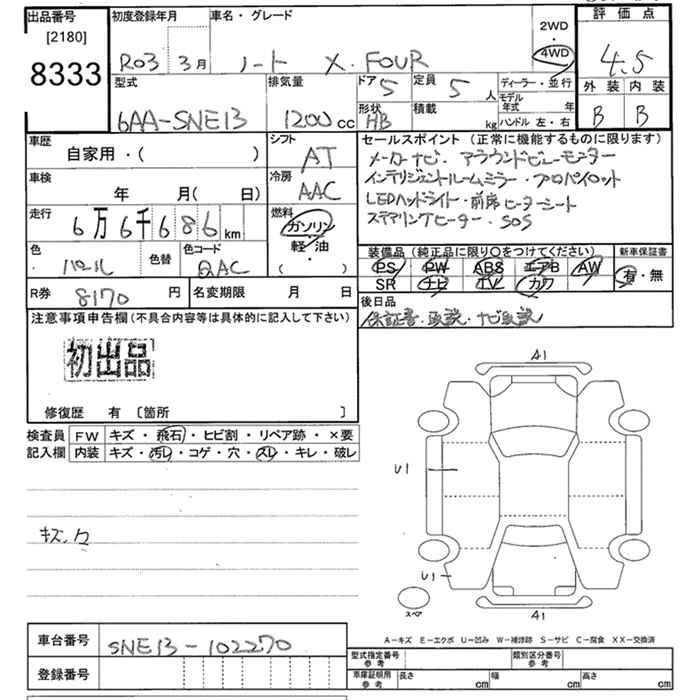 出品番号 初度登録年月 車名・グレード 2WD ・ 4WD 評価点
[2180]
8333 R03 3月 ノート X FOUR 4.5
型式 排気量 ドア 5 定員 5人 ディーラー・並行 外装 内装
モデル年式 年
6AA-SNE13 1200cc 形状 HB 積載 kg ハンドル 左・右 B B
車歴 シフト セールスポイント (正常に機能するものに限ります)
自家用・( ) AT メーカーナビ・アラウンドビューモニター
車検 冷房 インテリジェントルームミラー・プロパイロット
年 月(日) AAC LEDヘッドライト・前席ヒーターシート
走行 燃料 ステアリングヒーター・SOS
6万6千686km ガソリン
軽・油
( )
色 色替 色コード 装備品 (純正品に限り○をつけてください) 新車保証書
パール QAC PS PW ABS エアB AW 有・無
SR ナビ TV カワ
R券 8170円 名変期限 月 日 後日品
注意事項申告欄(不具合内容等は具体的に記入して下さい) 保証書・取説・ナビ取説
初出品
修復歴 有 〔箇所 〕
検査員 FW キズ・飛石・ヒビ割・リペア跡・×要
記入欄 内装 キズ・汚レ・コゲ・穴・スレ・キレ・破レ
A1
U1
キズ,々
U1
スペア
A1
A-キズ E-エクボ U-凹み W-補修跡 S-サビ C-腐食 XX-交換済
車台番号 SNE13-102270
型式指定番号 参考 類別区分番号 参考
登録番号
車庫証明用 参考 長さ cm 幅 cm 高さ cm